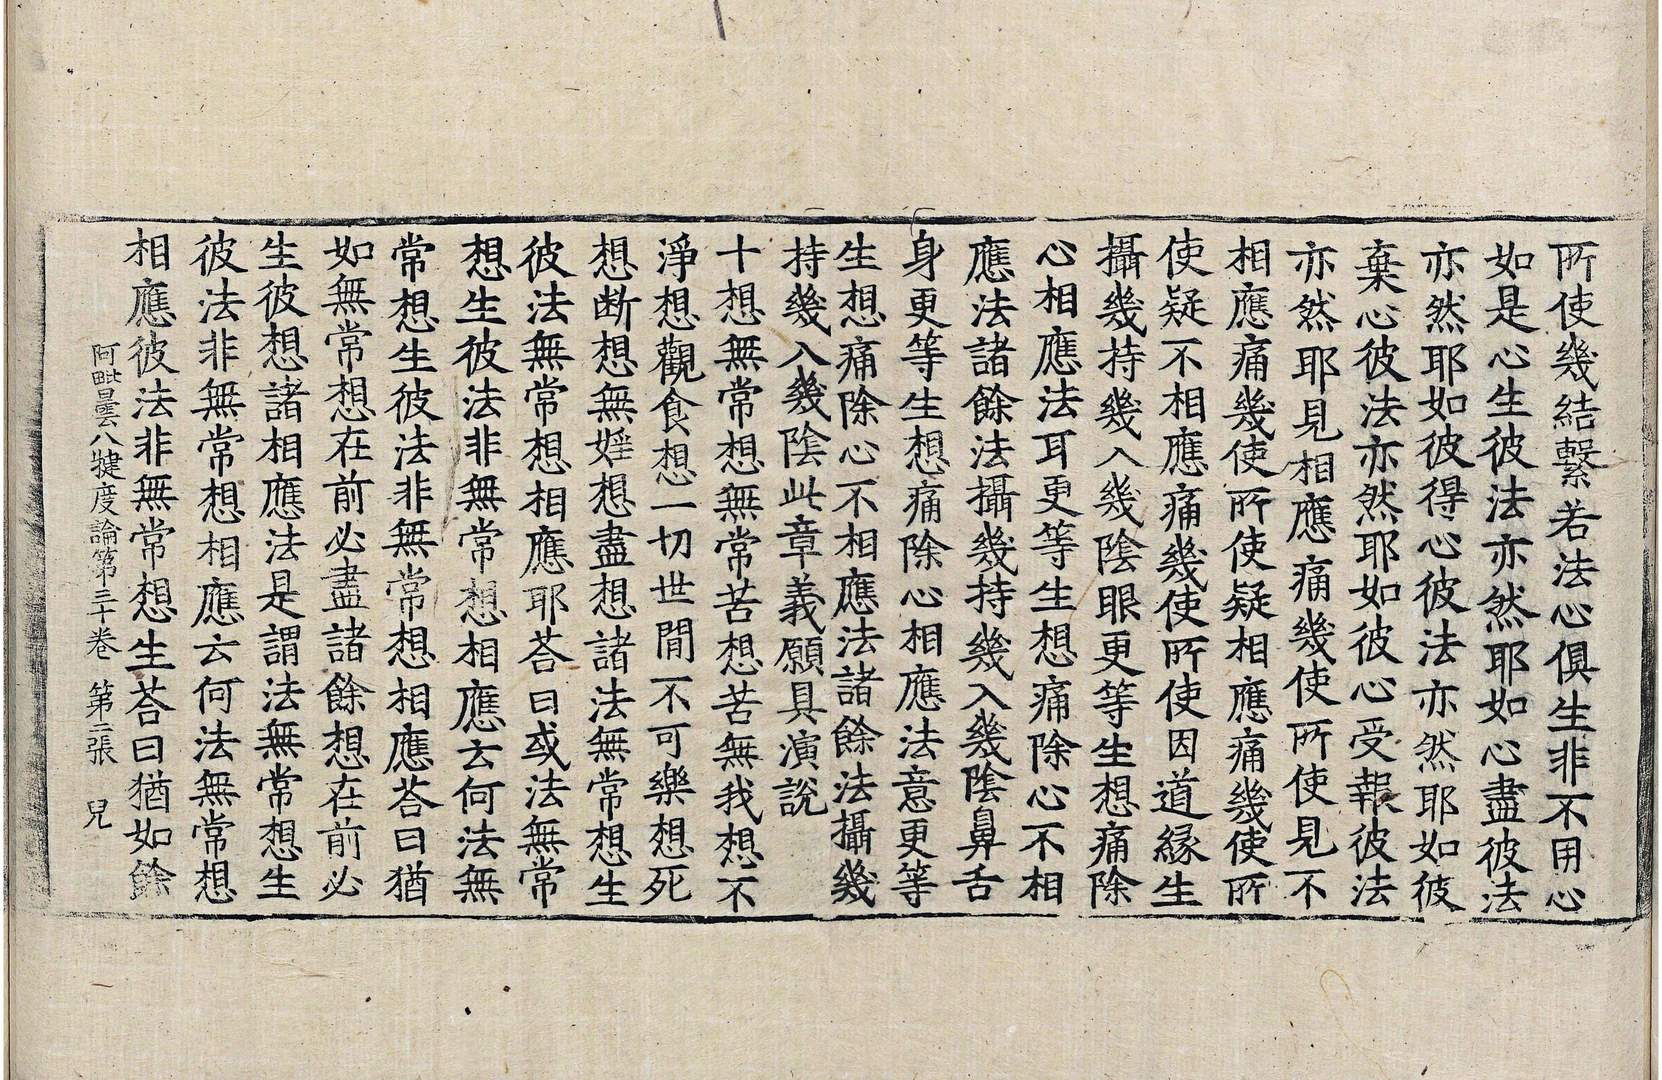 所使幾結繫若法心俱生非不用心
如是心生彼法亦然耶如心盡彼法
亦然耶如彼得心彼法亦然耶如彼
棄心彼法亦然耶如彼心受報彼法
亦然耶見相應痛幾使所使見不
相應痛幾使所使疑相應痛幾使所
使疑不相應痛幾使所使因道緣生
攝幾持幾入幾陰眼更等生想痛除
心相應法耳更等生想痛除心不相
應法諸餘法攝幾持幾入幾陰鼻舌
身更等生想痛除心相應法意更等
生想痛除心不相應法諸餘法攝幾
持幾入幾陰此章義願具演說
十想無常想無常苦想苦無我想不
淨想觀食想一切世間不可樂想死
想断想無婬想盡想諸法無常想生
彼法無常想相應耶荅曰或法無常
想生彼法非無常想相應云何法無
常想生彼法非無常想相應荅曰猶
如無常想在前必盡諸餘想在前必
生彼想諸相應法是謂法無常想生
彼法非無常想相應云何法無常想
相應彼法非無常想生荅曰猶如餘
阿毗曇八犍度論第三十卷 第二張 兒